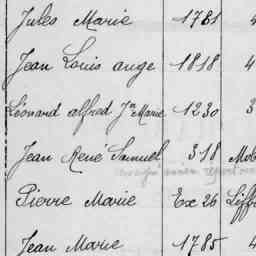 Jules Marie 1781 4
Jean Louis ange 1818 4
Léonard alfred Jn Marie 1230 3
Jean René Samuel 318 Mob
Pierre Marie Ex 26 Liffr
Jean Marie 1785 4